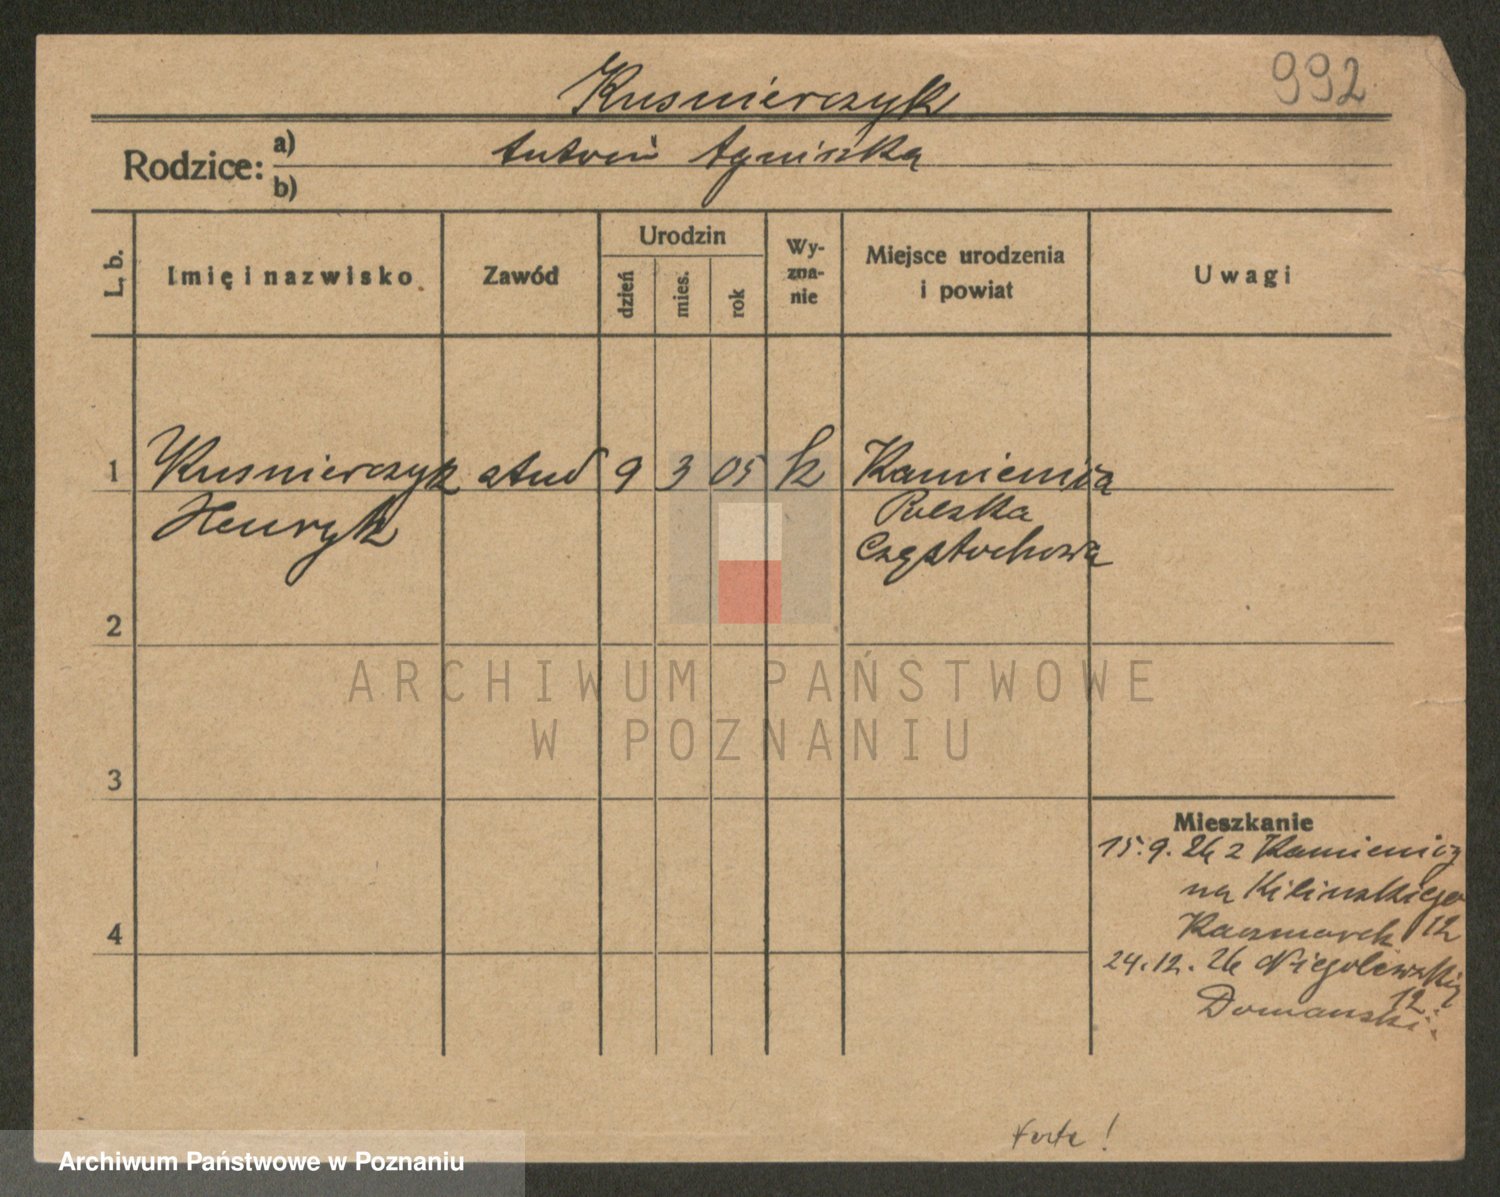 992
Kusnierczyk
Rodzice:
a) Antoni Agniszka
b)
L. b.
Imię i nazwisko
Zawód
Urodzin
dzień
mies.
rok
Wy-
zna-
nie
Miejsce urodzenia
i powiat
Uwagi
1 Kusnierczyk stud 9 3 05 k Kamienica
Henryk
Polska
Częstochowa
2
3
4
Mieszkanie
15.9.26 z Kamienicy
na Kilinskiego
Kaczmarek 12
24.12.26 Niegolewskich
12
Domanski
ARCHIWUM PAŃSTWOWE
W POZNANIU
Archiwum Państwowe w Poznaniu